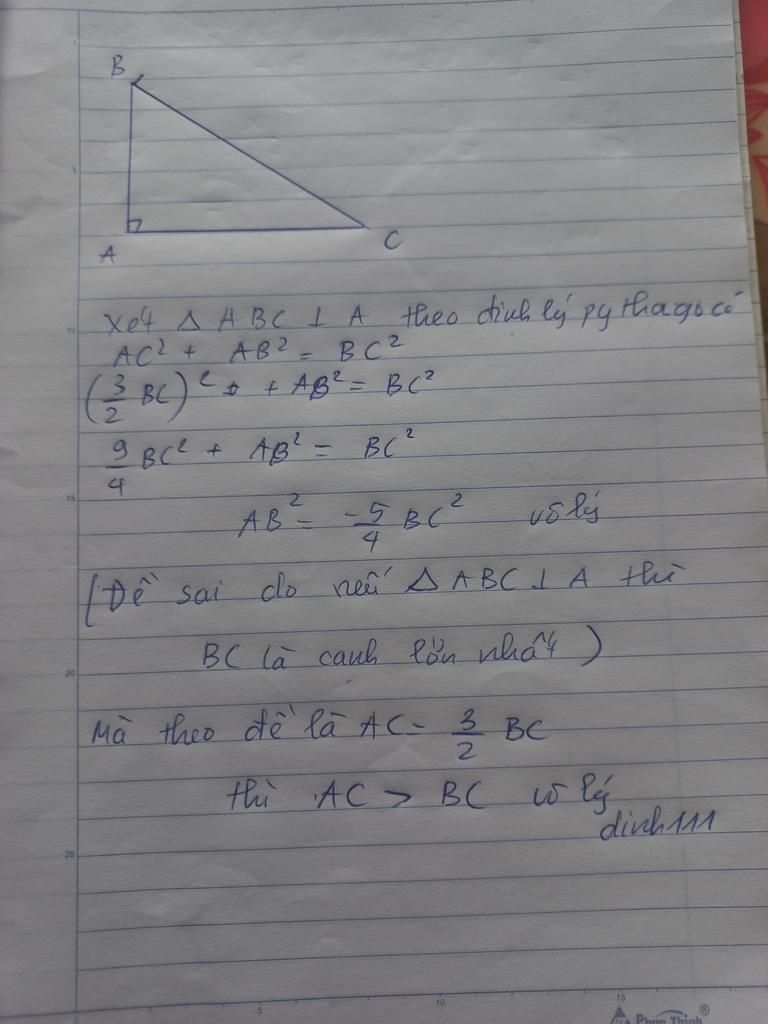 B
A
C
Xét Δ ABC ⊥ A theo định lý pythago có
AC² + AB² = BC²
(3/2 BC)² + AB² = BC²
9/4 BC² + AB² = BC²
AB² = -5/4 BC² vô lý
(Đề sai do nếu Δ ABC ⊥ A thì
BC là cạnh lớn nhất)
Mà theo đề là AC = 3/2 BC
thì AC > BC vô lý
dinh111
5
10
15
20
25
5
10
15
Phun Thinh®